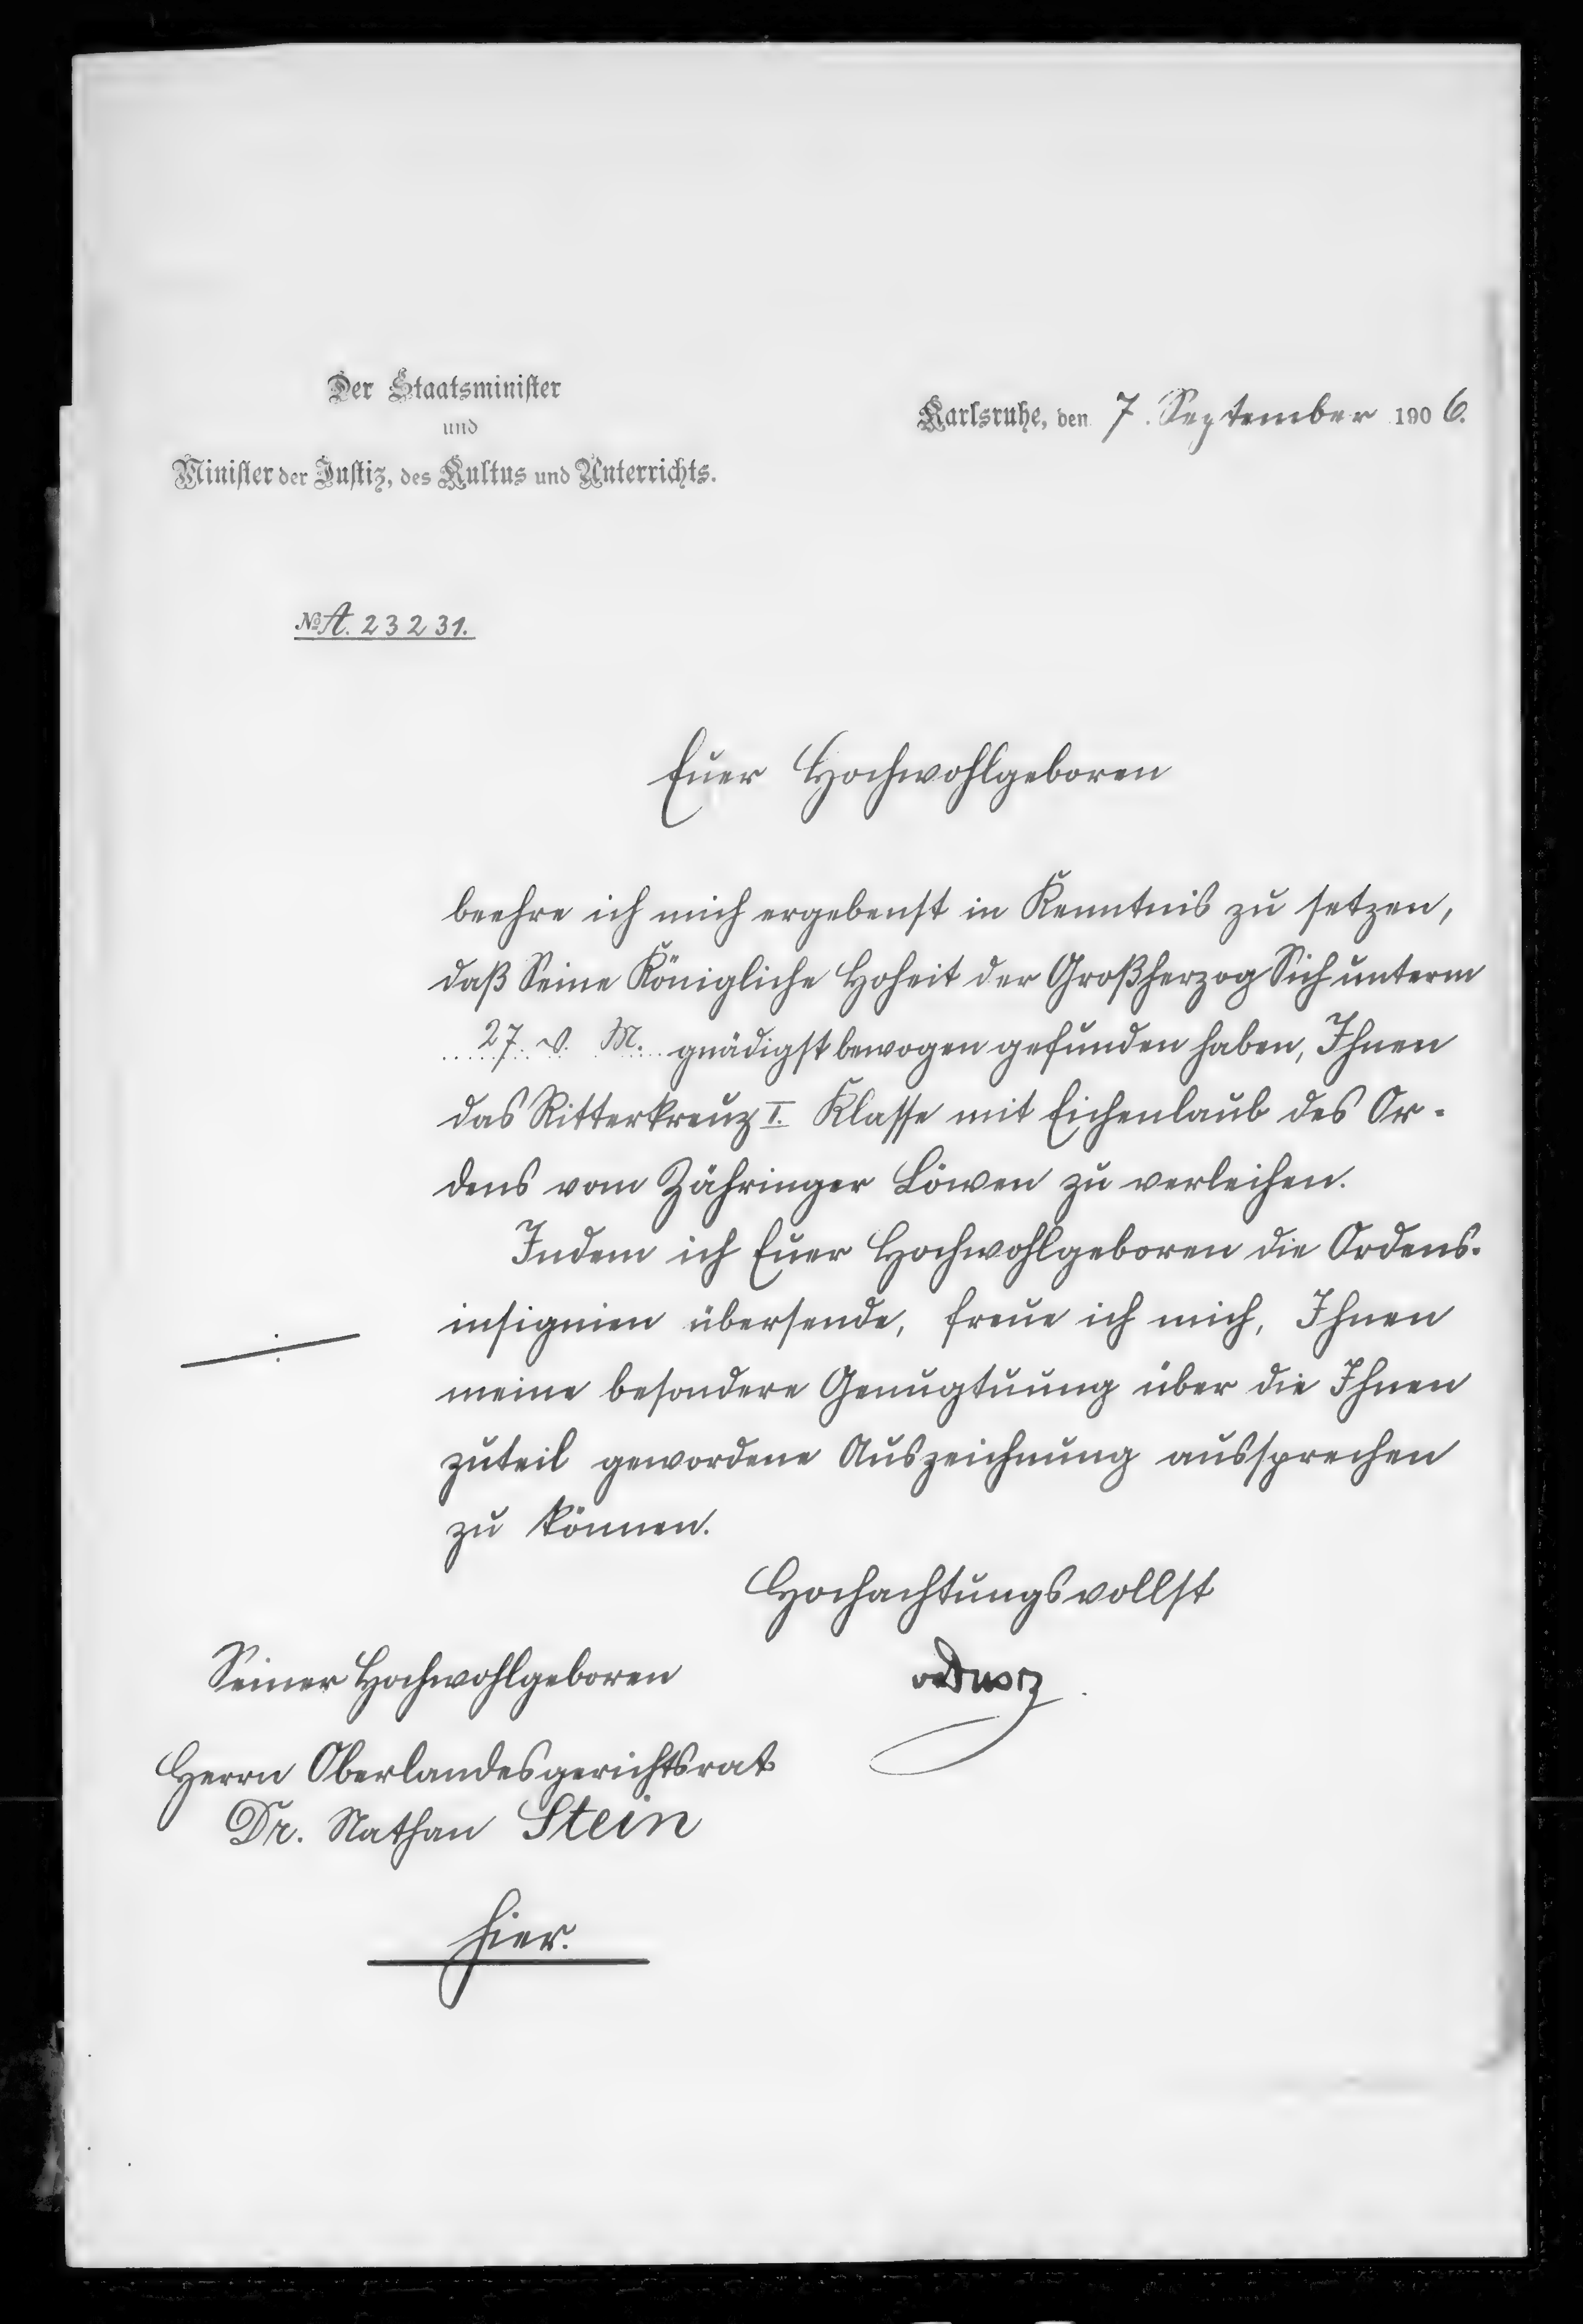 Der Staatsminister
und
Minister der Justiz, des Kultus und Unterrichts.
Karlsruhe, den 7. September 1906.
No A. 23231.
Euer Hochwohlgeboren
beehre ich mich ergebenst in Kenntnis zu setzen,
daß Seine Königliche Hoheit der Großherzog Sich unterm
27. v. M. gnädigst bewogen gefunden haben, Ihnen
das Ritterkreuz I. Klasse mit Eichenlaub des Or-
dens vom Zähringer Löwen zu verleihen.
Indem ich Euer Hochwohlgeboren die Ordens-
insignien übersende, freue ich mich, Ihnen
meine besondere Genugtuung über die Ihnen
zuteil gewordene Auszeichnung aussprechen
zu können.
Hochachtungsvollst
von Dusch
Seiner Hochwohlgeboren
Herrn Oberlandesgerichtsrat
Dr. Nathan Stein
hier.